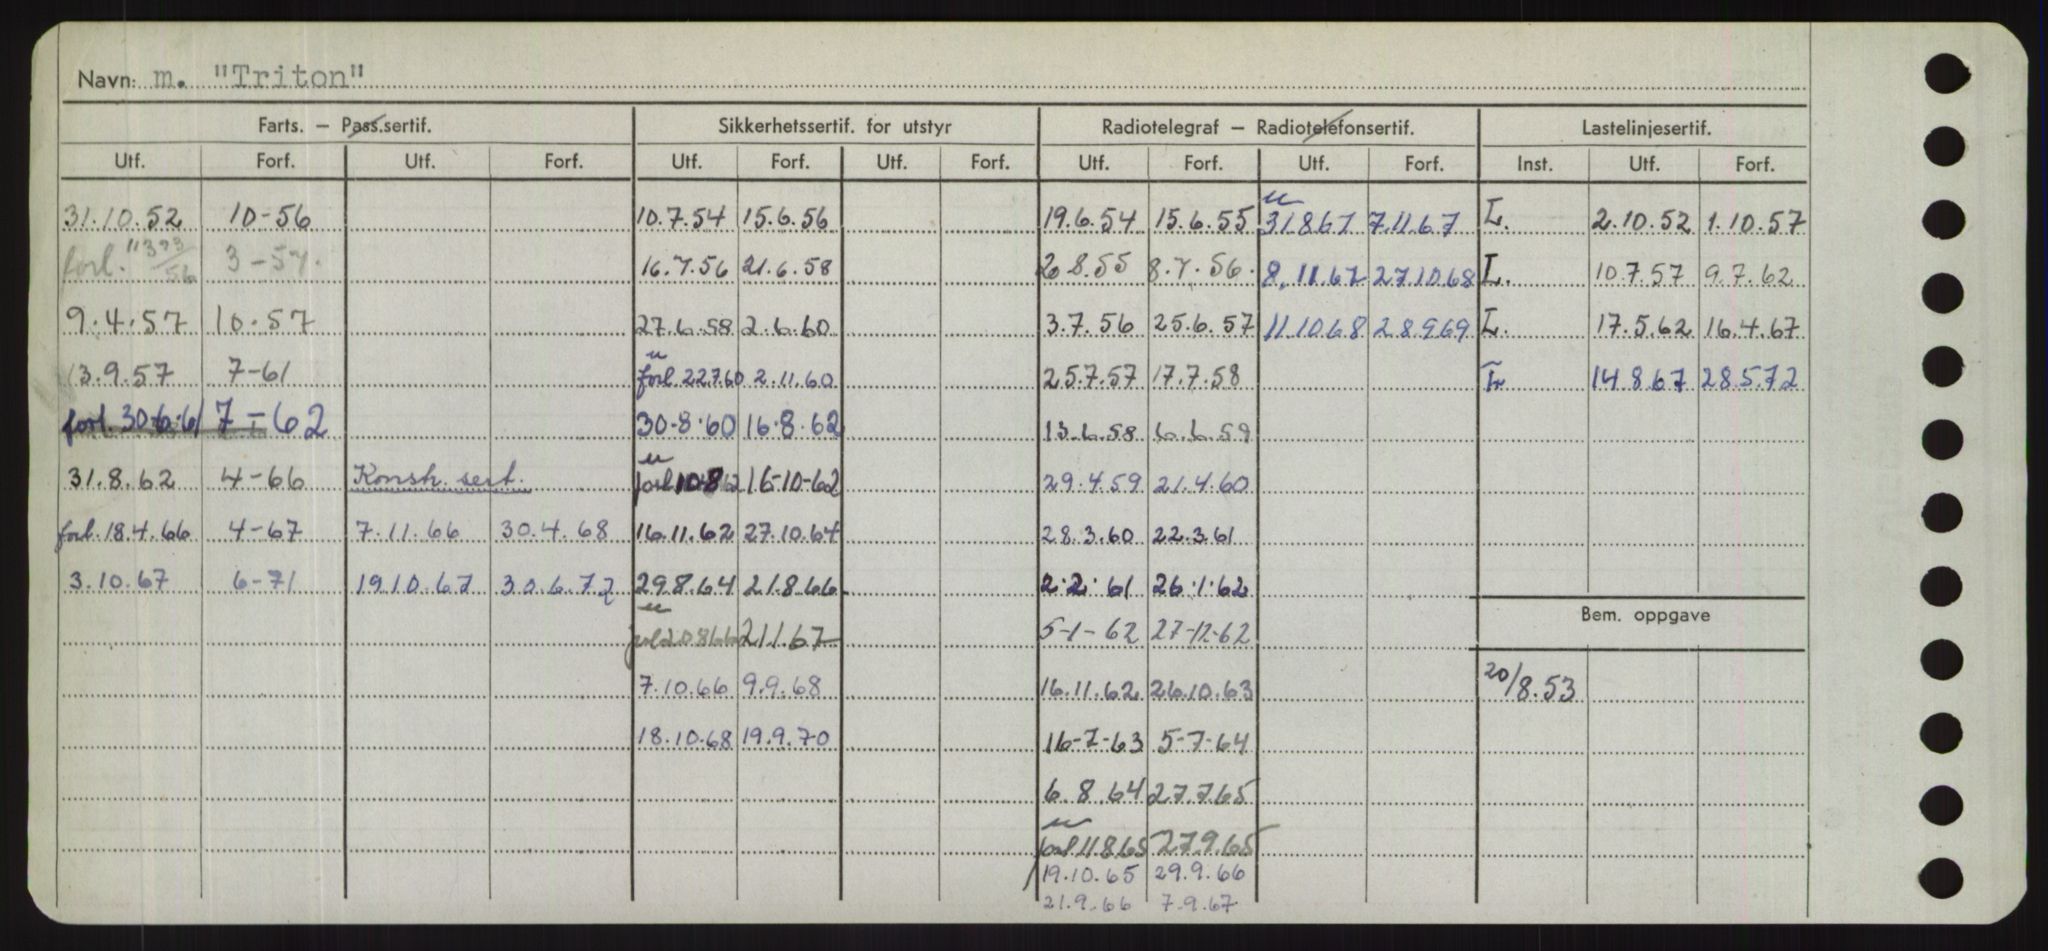 Navn: m. "Triton"
Farts. – Pass.sertif. Sikkerhetssertif. for utstyr Radiotelegraf – Radiotelefonsertif. Lastelinjesertif.
Utf. Forf. Utf. Forf. Utf. Forf. Utf. Forf. Utf. Forf. Utf. Forf. Inst. Utf. Forf.
31.10.52 10-56 10.7.54 15.6.56 19.6.54 15.6.55 u 31.8.67 7.11.67 L. 2.10.52 1.10.57
forl. 3-57. 16.7.56 21.6.58 2.8.55 8.7.56. 8.11.67 27.10.68 L. 10.7.57 9.7.62
9.4.57 10.57 27.6.58 2.6.60 3.7.56 25.6.57 11.10.68 28.9.69 L. 17.5.62 16.4.67
13.9.57 7-61 u forl 22.7.60 2.11.60 25.7.57 17.7.58 14.8.67 28.5.72
forl. 30.6.61 7-62 30.8.60 16.8.62 13.6.58 6.6.59
31.8.62 4-66 Konstr. sert. u forl 10.8.62 16-10-62 29.4.59 21.4.60
forl. 18.4.66 4-67 7.11.66 30.4.68 16.11.62 27.10.64 28.3.60 22.3.61
3.10.67 6-71 19.10.67 30.6.72 29.8.64 21.8.66 2.2.61 26.1.62
Bem. oppgave
u forl 20.8.66 21.1.67 5-1-62 27-12-62
7.10.66 9.9.68 16.11.62 26.10.63 20/8.53
18.10.68 19.9.70 16-7-63 5-7-64
6.8.64 27.7.65
u forl 11.8.65 27.9.65
19.10.65 29.9.66
21.9.66 7.9.67